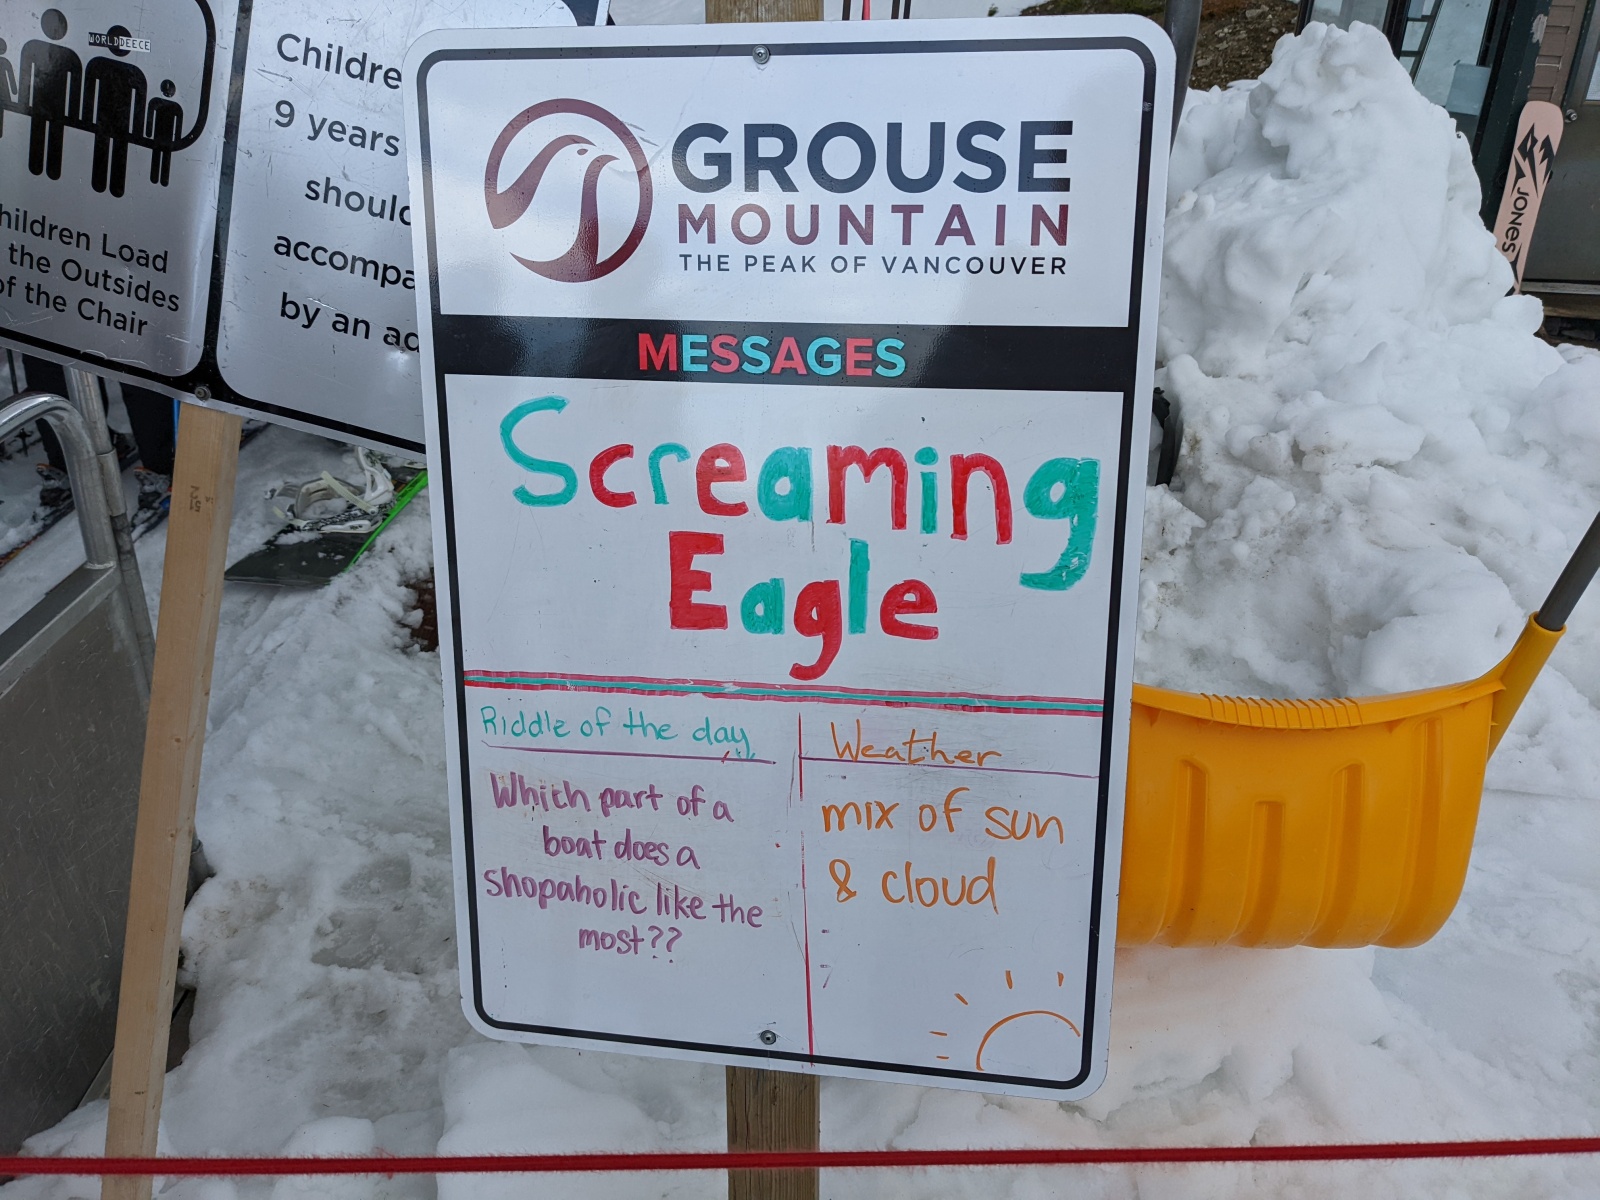 WORLDDEECE
hildren Load
the Outsides
of the Chair
Childre
9 years
should
accompa
by an ad
GROUSE
MOUNTAIN
THE PEAK OF VANCOUVER
MESSAGES
Screaming
Eagle
Riddle of the day
Which part of a
boat does a
shopaholic like the
most??
Weather
mix of sun
& cloud
JONES